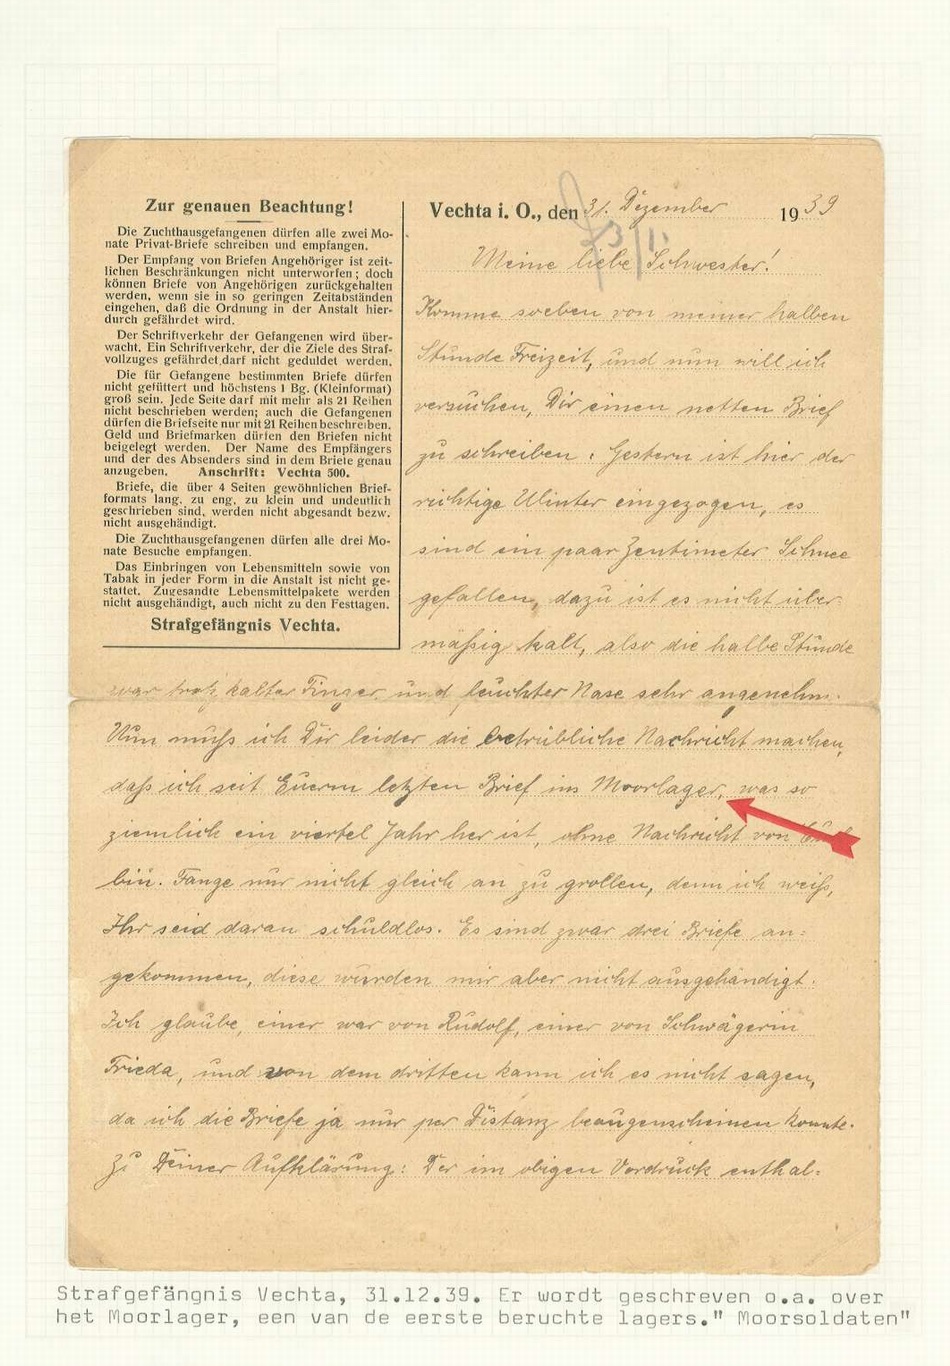 Zur genauen Beachtung!
Die Zuchthausgefangenen dürfen alle zwei Mo-
nate Privat-Briefe schreiben und empfangen.
Der Empfang von Briefen Angehöriger ist zeit-
lichen Beschränkungen nicht unterworfen; doch
können Briefe von Angehörigen zurückgehalten
werden, wenn sie in so geringen Zeitabständen
eingehen, daß die Ordnung in der Anstalt hier-
durch gefährdet wird.
Der Schriftverkehr der Gefangenen wird über-
wacht. Ein Schriftverkehr, der die Ziele des Straf-
vollzuges gefährdet, darf nicht geduldet werden.
Die für Gefangene bestimmten Briefe dürfen
nicht gefüttert und höchstens 1 Bg. (Kleinformat)
groß sein. Jede Seite darf mit mehr als 21 Reihen
nicht beschrieben werden; auch die Gefangenen
dürfen die Briefseite nur mit 21 Reihen beschreiben.
Geld und Briefmarken dürfen den Briefen nicht
beigelegt werden. Der Name des Empfängers
und der des Absenders sind in dem Briefe genau
anzugeben. Anschrift: Vechta 500.
Briefe, die über 4 Seiten gewöhnlichen Brief-
formats lang, zu eng, zu klein und undeutlich
geschrieben sind, werden nicht abgesandt bezw.
nicht ausgehändigt.
Die Zuchthausgefangenen dürfen alle drei Mo-
nate Besuche empfangen.
Das Einbringen von Lebensmitteln sowie von
Tabak in jeder Form in die Anstalt ist nicht ge-
stattet. Zugesandte Lebensmittelpakete werden
nicht ausgehändigt, auch nicht zu den Festtagen.
Strafgefängnis Vechta.
Vechta i. O., den 31. Dezember 1939
Meine liebe Schwester!
Komme soeben von meiner halben
Stunde Freizeit, und nun will ich
versuchen, Dir einen netten Brief
zu schreiben. Gestern ist hier der
richtige Winter eingezogen, es
sind ein paar Zentimeter Schnee
gefallen, dazu ist es nicht über-
mäßig kalt, also die halbe Stunde
war trotz kalter Finger und feuchter Nase sehr angenehm.
Nun muß ich Dir leider die betrübliche Nachricht machen,
daß ich seit Euerm letzten Brief ins Moorlager, was so
ziemlich ein viertel Jahr her ist, ohne Nachricht von Euch
bin. Fange nur nicht gleich an zu grollen, denn ich weiß,
Ihr seid daran schuldlos. Es sind zwar drei Briefe an-
gekommen, diese wurden mir aber nicht ausgehändigt.
Ich glaube, einer war von Rudolf, einer von Schwägerin
Frieda, und von dem dritten kann ich es nicht sagen,
da ich die Briefe ja nur per Distanz beaugenscheinen konnte.
Zu Deiner Aufklärung: Der im obigen Vordruck enthal-
Strafgefängnis Vechta, 31.12.39. Er wordt geschreven o.a. over
het Moorlager, een van de eerste beruchte lagers." Moorsoldaten"